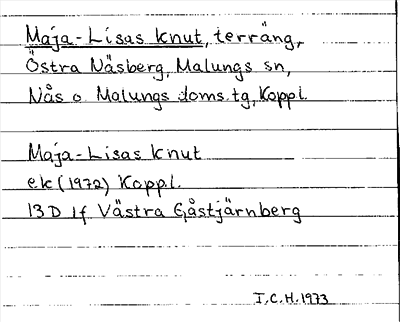 Maja-Lisas Knut, terräng,
Östra Näsberg, Malungs sn,
Nås o. Malungs doms.tg, Koppl.
Maja-Lisas Knut
ek (1972) Koppl.
13D 1f Västra Gåstjärnberg
I.C.H. 1973